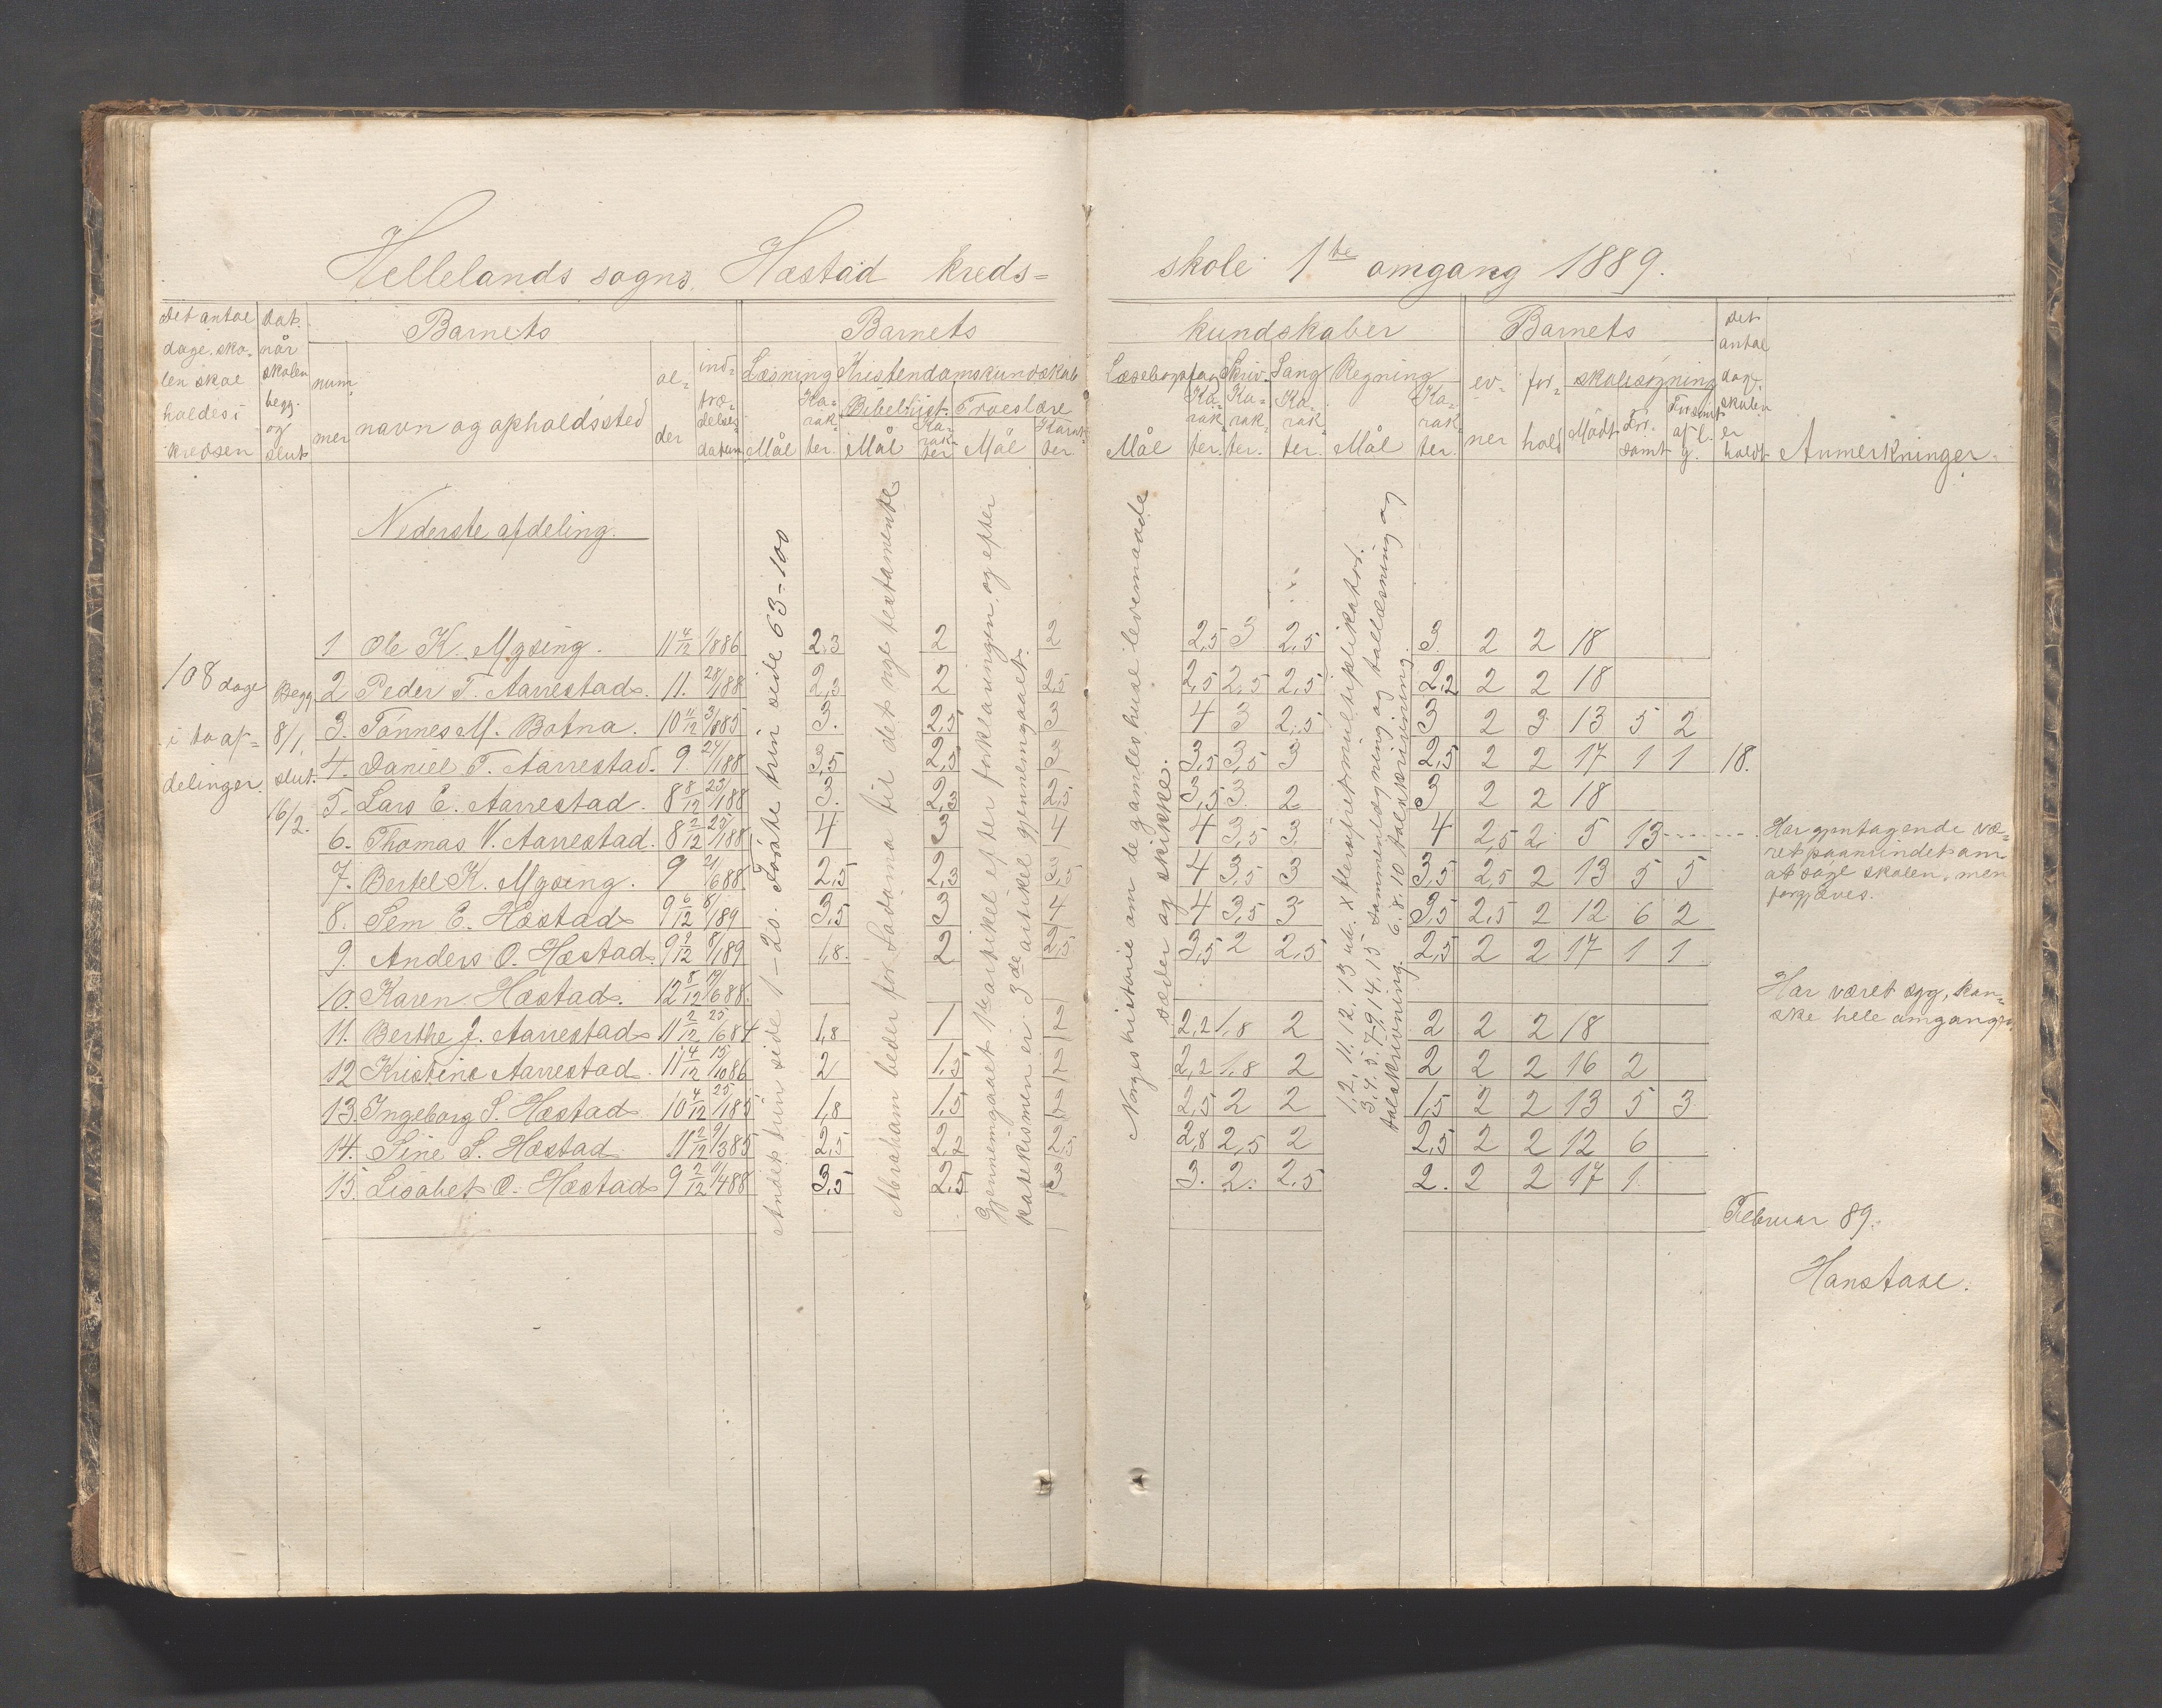 Hellelands sogns, Hæstad kreds=
skole 1ste omgang 1889.
Det antal dage skolen skal holdes i kredsen
Dat. når skolen begg. og slut.
Barnets
Barnets
kundskaber
Barnets
det antal dage skolen er holdt
nummer
navn og opholdssted
alder
indtrædelsesdatum
Læsning
Kristendomskundskab
Bibelhist.
Troeslære
Mål
Karakter.
Mål
Karakter
Mål
Karakter
Læsebogsfag
Skriv.
Sang
Regning
Mål
Karakter.
Karakter.
Karakter.
Mål
Karakter.
evner
forhold
skolesøgning
Mødt
Forsømt
Forsømt af l. g.
Anmerkninger
Nederste afdeling.
108 dage i to afdelinger.
Begg. 8/1, slut. 16/2.
Andet trin side 1-20. Første trin side 63-100
Abraham beder for Sodoma til det nye testamente
Gjennemgaaet 1ste artikel efter forklaringen, og efter
katekismen er 3de artikel gjennemgaaet.
Norgeshistorie om de gamles huse levemaade
sæder og skikke.
1, 2, 11. 12. 13 ud. x flersifret multiplikator.
3. 4. 5. 7. 9, 14. 15 sammenlægning og tallæsning og
talskrivning. 6. 8. 10 talskrivning.
1 Ole K. Mysing. 11 4/12 1/8 86 2,3 2 2 2,5 3 2,5 3 2 2 18
2 Peder T. Aarrestad. 11. 28/1 88 2,3 2 2,5 2,5 2,5 2,5 2,2 2 2 18
3. Tønnes M. Botna. 10 11/12 3/8 85 3. 2,5 3 4 3 2,5 3 2 3 13 5 2
4. Daniel T. Aarrestad. 9. 24/1 88 3,5 2,5 3 3,5 3,5 3 2,5 2 2 17 1 1 18.
5. Lars E. Aarrestad. 8 8/12 23/1 88 3. 2,3 2,5 3,5 3. 2 3 2 2 18
6. Thomas V. Aarrestad. 8 2/12 25/1 88 4 3 4 4 3,5 3 4 2,5 2 5 13 Har gjentagende været paamindet om at søge skolen, men forgjæves.
7. Bertel K. Mysing. 9 21/6 88 2,5 2,3 3,5 4 3,5 3 3,5 2,5 2 13 5 5
8. Sem E. Hæstad 9 6/12 8/1 89 3,5 3 4 4 3,5 3 3,5 2,5 2 12 6 2
9. Anders O. Hæstad. 9 2/12 8/1 89 1,8. 2 2,5 3,5 2 2,5 2,5 2 2 17 1 1
10. Karen Hæstad. 12 8/12 19/6 88. Har været syg, kanske hele omgangen
11. Berthe J. Aarrestad 11 2/12 25/6 84 1,8 1 2 2,2 1,8 2 2 2 2 18
12 Kristine Aarrestad. 11 4/12 15/10 86 2 1,5 2 2,2 1,8 2 2 2 2 16 2
13. Ingeborg S. Hæstad 10 4/12 25/1 85 1,8 1,5 2 2,5 2 2 1,5 2 2 13 5 3
14. Sine S. Hæstad 11 2/12 9/3 85 2,5 2,2 2,5 2,8 2,5 2 2,5 2 2 12 6
15. Lisabet O. Hæstad 9 2/12 9/4 88 3,5 2,5 3 3. 2. 2,5 2. 2 2 17 1
Februar 89.
Hanstase.